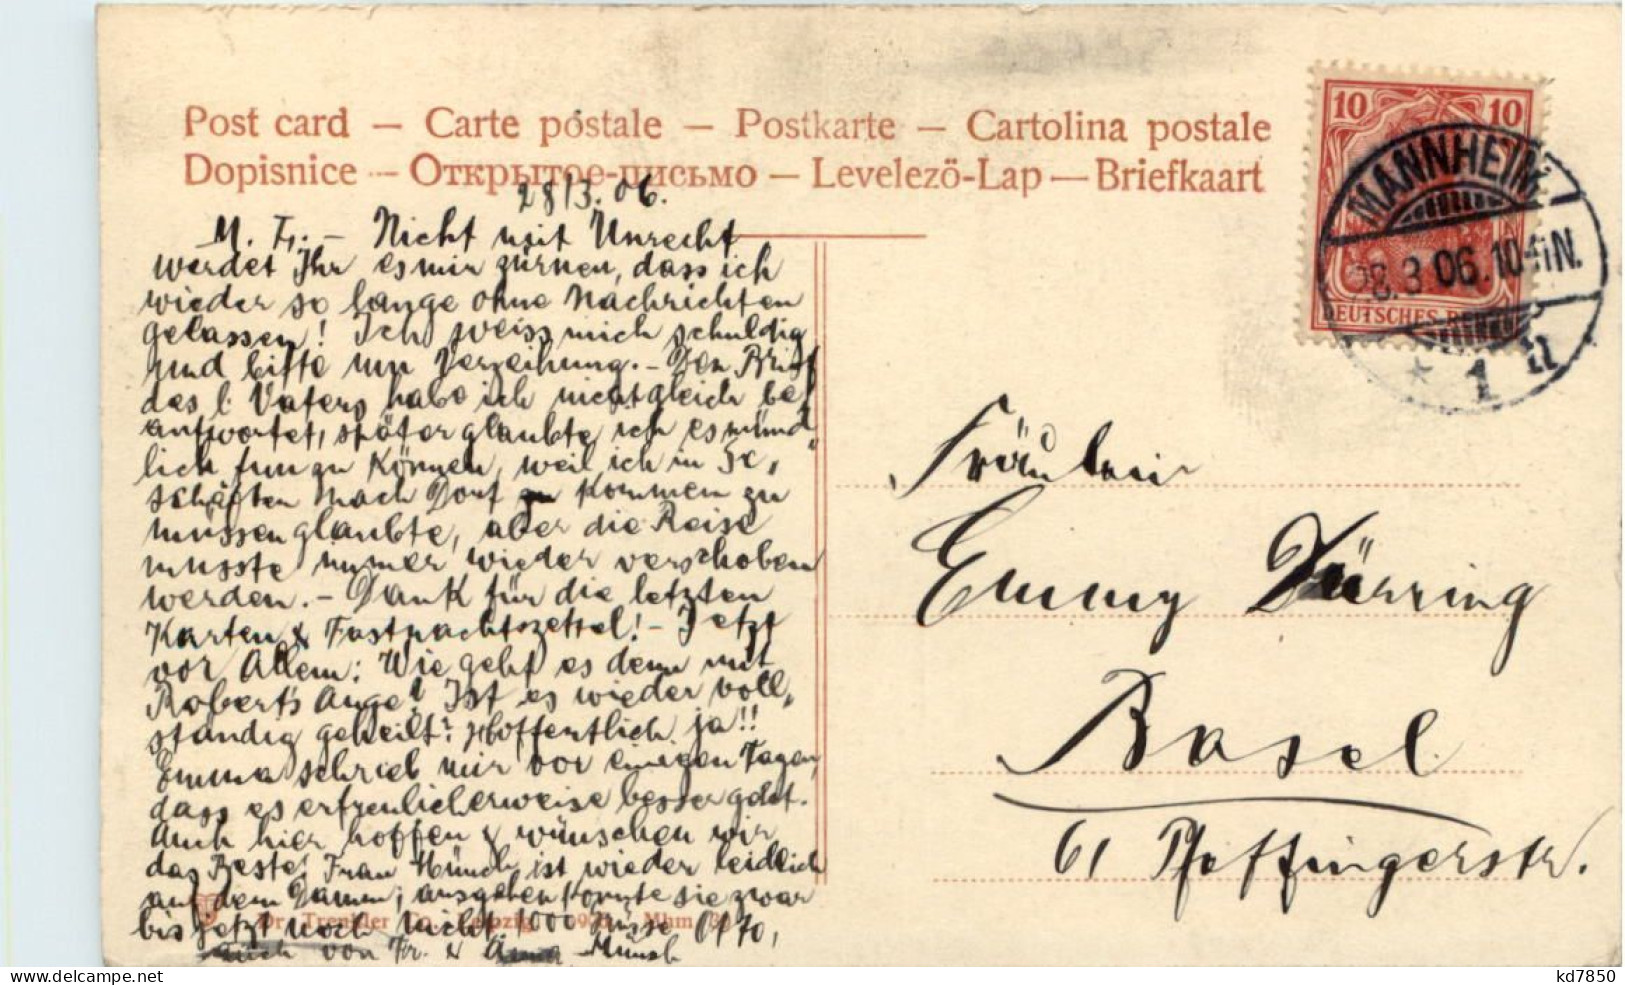 Post card — Carte postale — Postkarte — Cartolina postale
Dopisnice — Открытое-письмо — Levelezö-Lap — Briefkaart
28/3. 06.
M. Fr. — Nicht mit Unrecht
werdet Ihr es mir zürnen, dass ich
wieder so lange ohne Nachrichten
gelassen! Ich weiss mich schuldig
und bitte um Verzeihung. — Den Brief
des l. Vaters habe ich nicht gleich be=
antwortet, später glaubte ich es münd„
lich tun zu können, weil ich in Ge„
schäften nach Dort zu kommen zu
müssen glaubte, aber die Reise
musste immer wieder verschoben
werden. — Dank für die letzten
Karten & Fastnachtszettel! — Jetzt
vor Allem: Wie geht es denn mit
Robert's Auge? Ist es wieder voll„
ständig geheilt? Hoffentlich ja!!
Emma schrieb mir vor einigen Tagen,
dass es erfreulicherweise besser geht.
Auch hier hoffen & wünschen wir
das Beste! Frau Münch ist wieder leidlich
auf dem Damm; ausgehen konnte sie zwar
bis jetzt noch nicht. 1000 Grüsse
auch von Fr. & Münch
Dr. Trenkler Co., Leipzig Mhm
10 10
DEUTSCHES REICH
MANNHEIM
28. 3 06. 10-11N.
* 1
Fräulein
Emmy Dürring
Basel
61 Pfeffingerstr.
kd7850